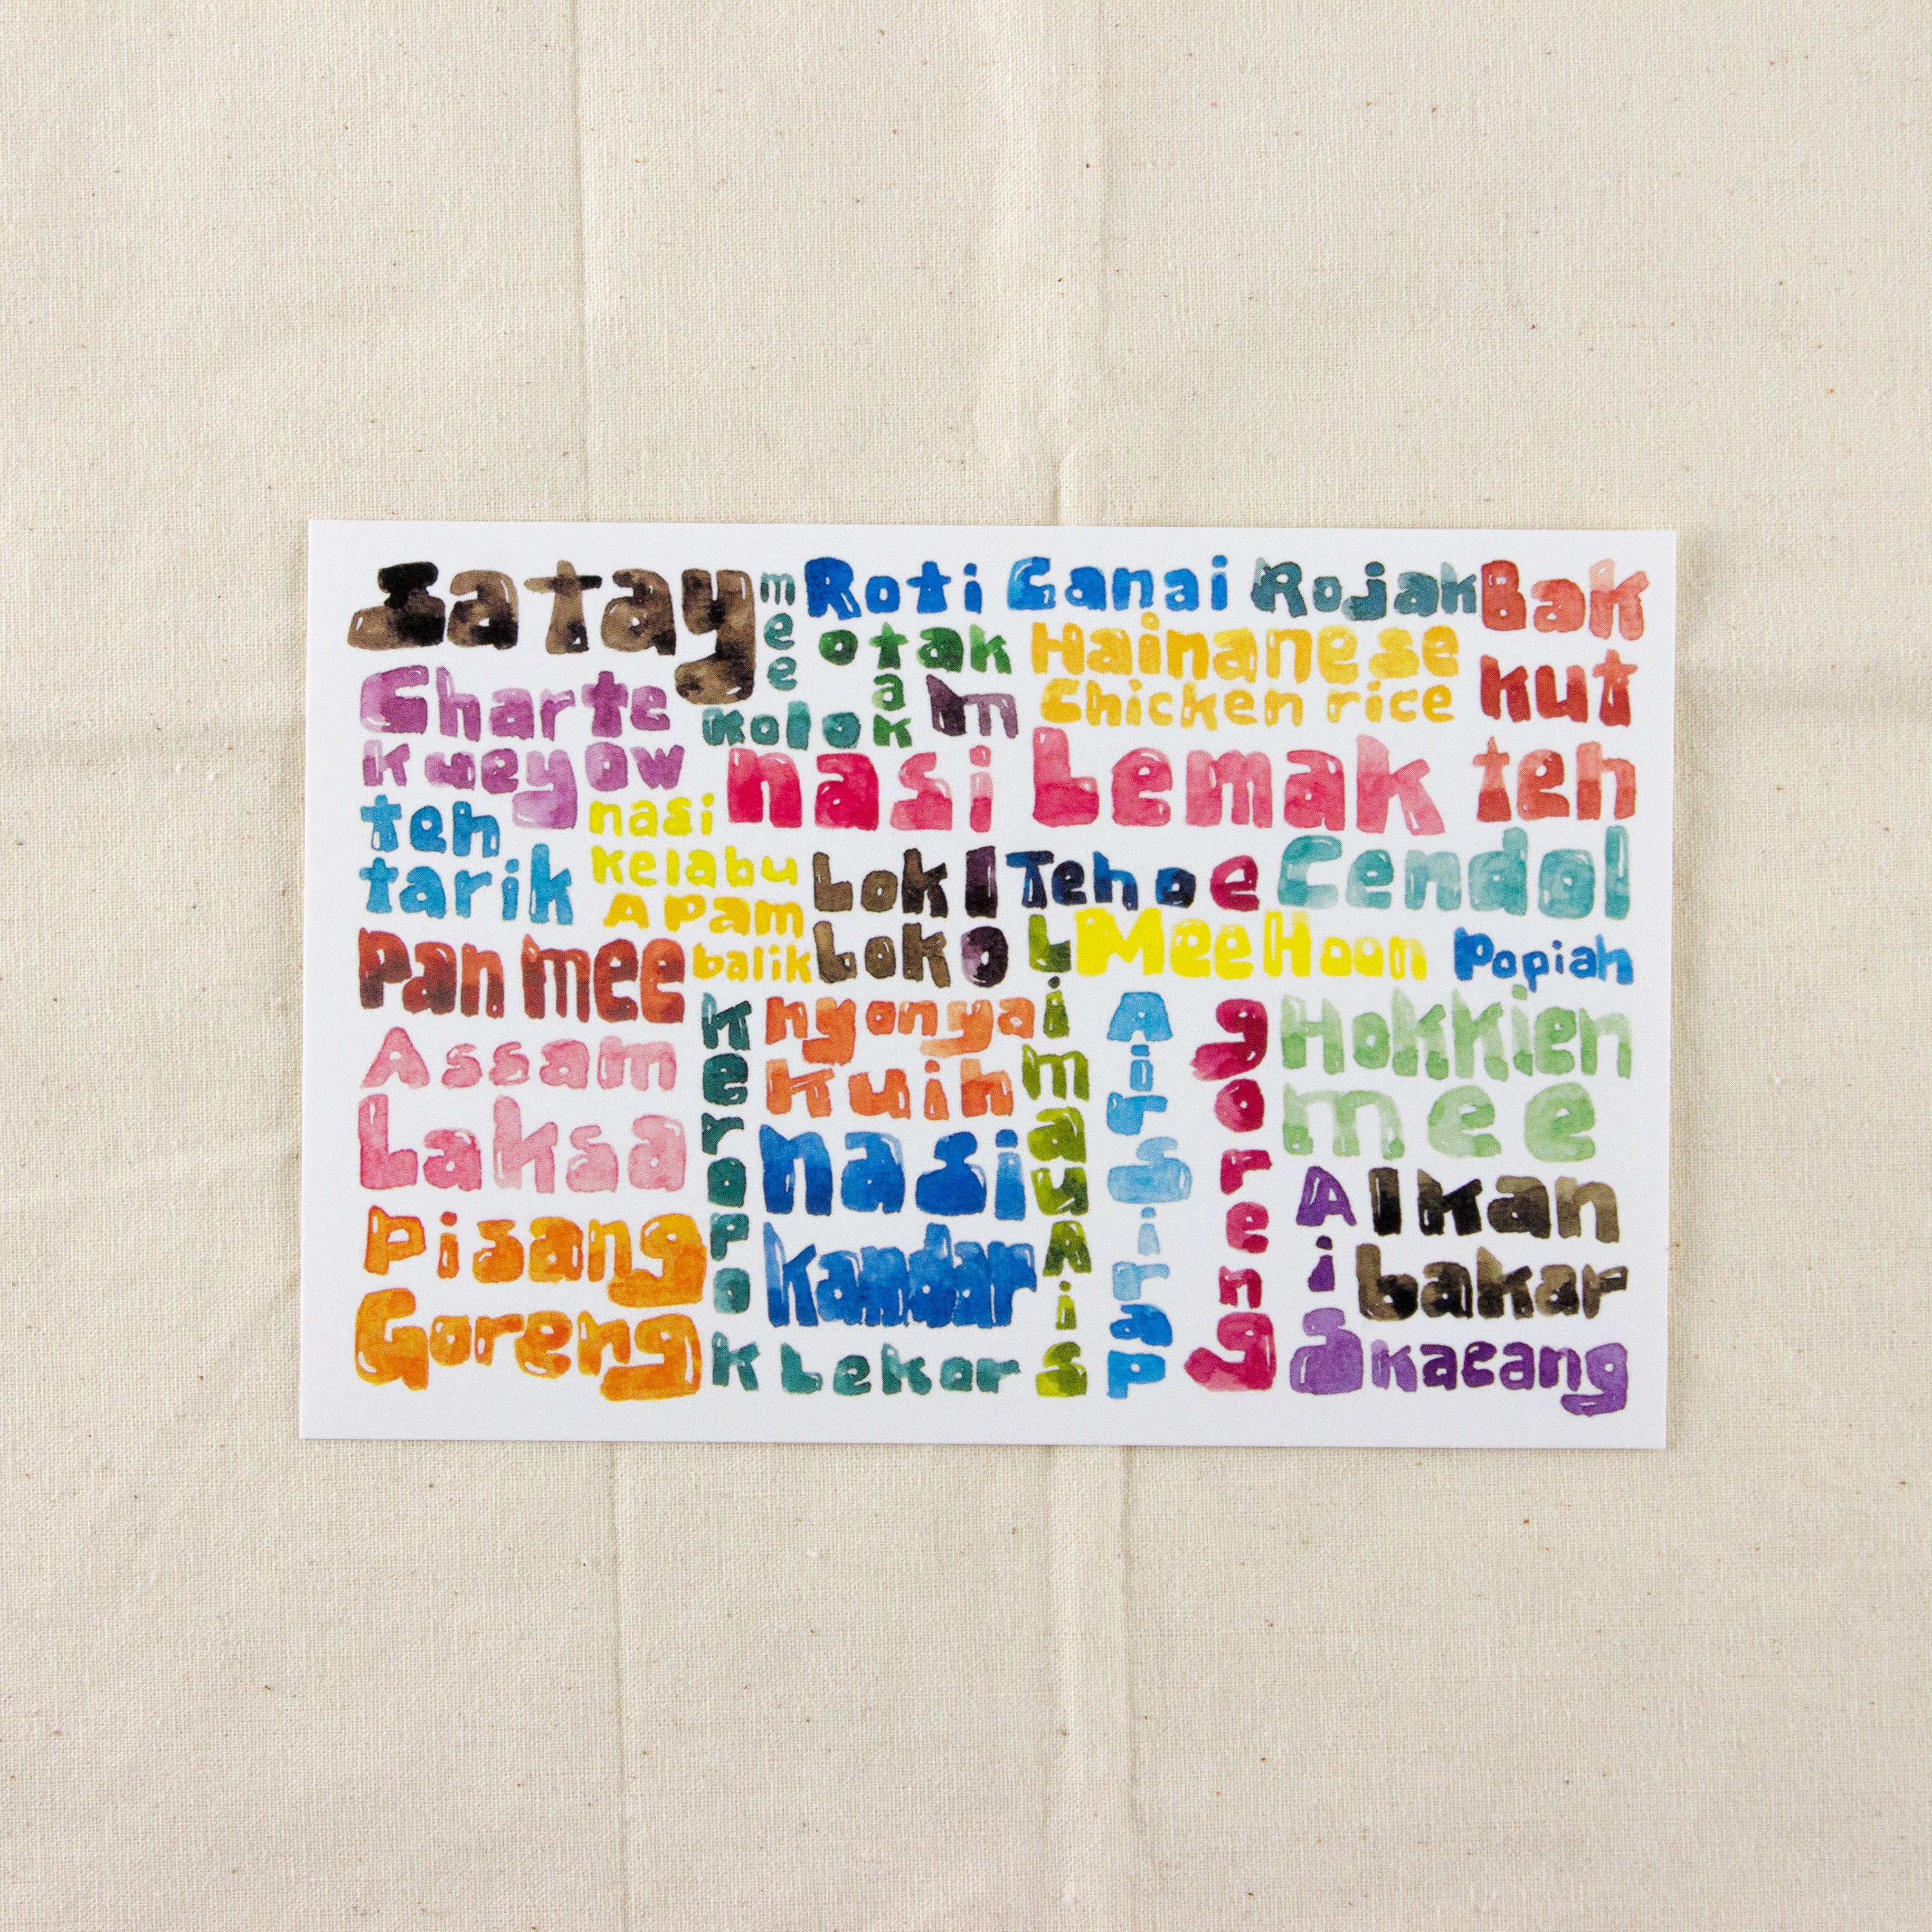 Satay
mee
Kolok
Roti Canai
Rojak
Bak
kut
teh
otak
otak
Hainanese
Chicken rice
Charte
Kueyow
nasi Lemak
teh
tarik
nasi
Kelabu
Apam
balik
Lok
Lok
Teh o
Cendol
pan mee
Mee Hoon
goreng
Popiah
Assam
Laksa
Keropo
k Lekor
nyonya
kuih
Limau Ais
Air Sirap
Hokkien
mee
nasi
kandar
Pisang
Goreng
Ikan
bakar
Ais kacang